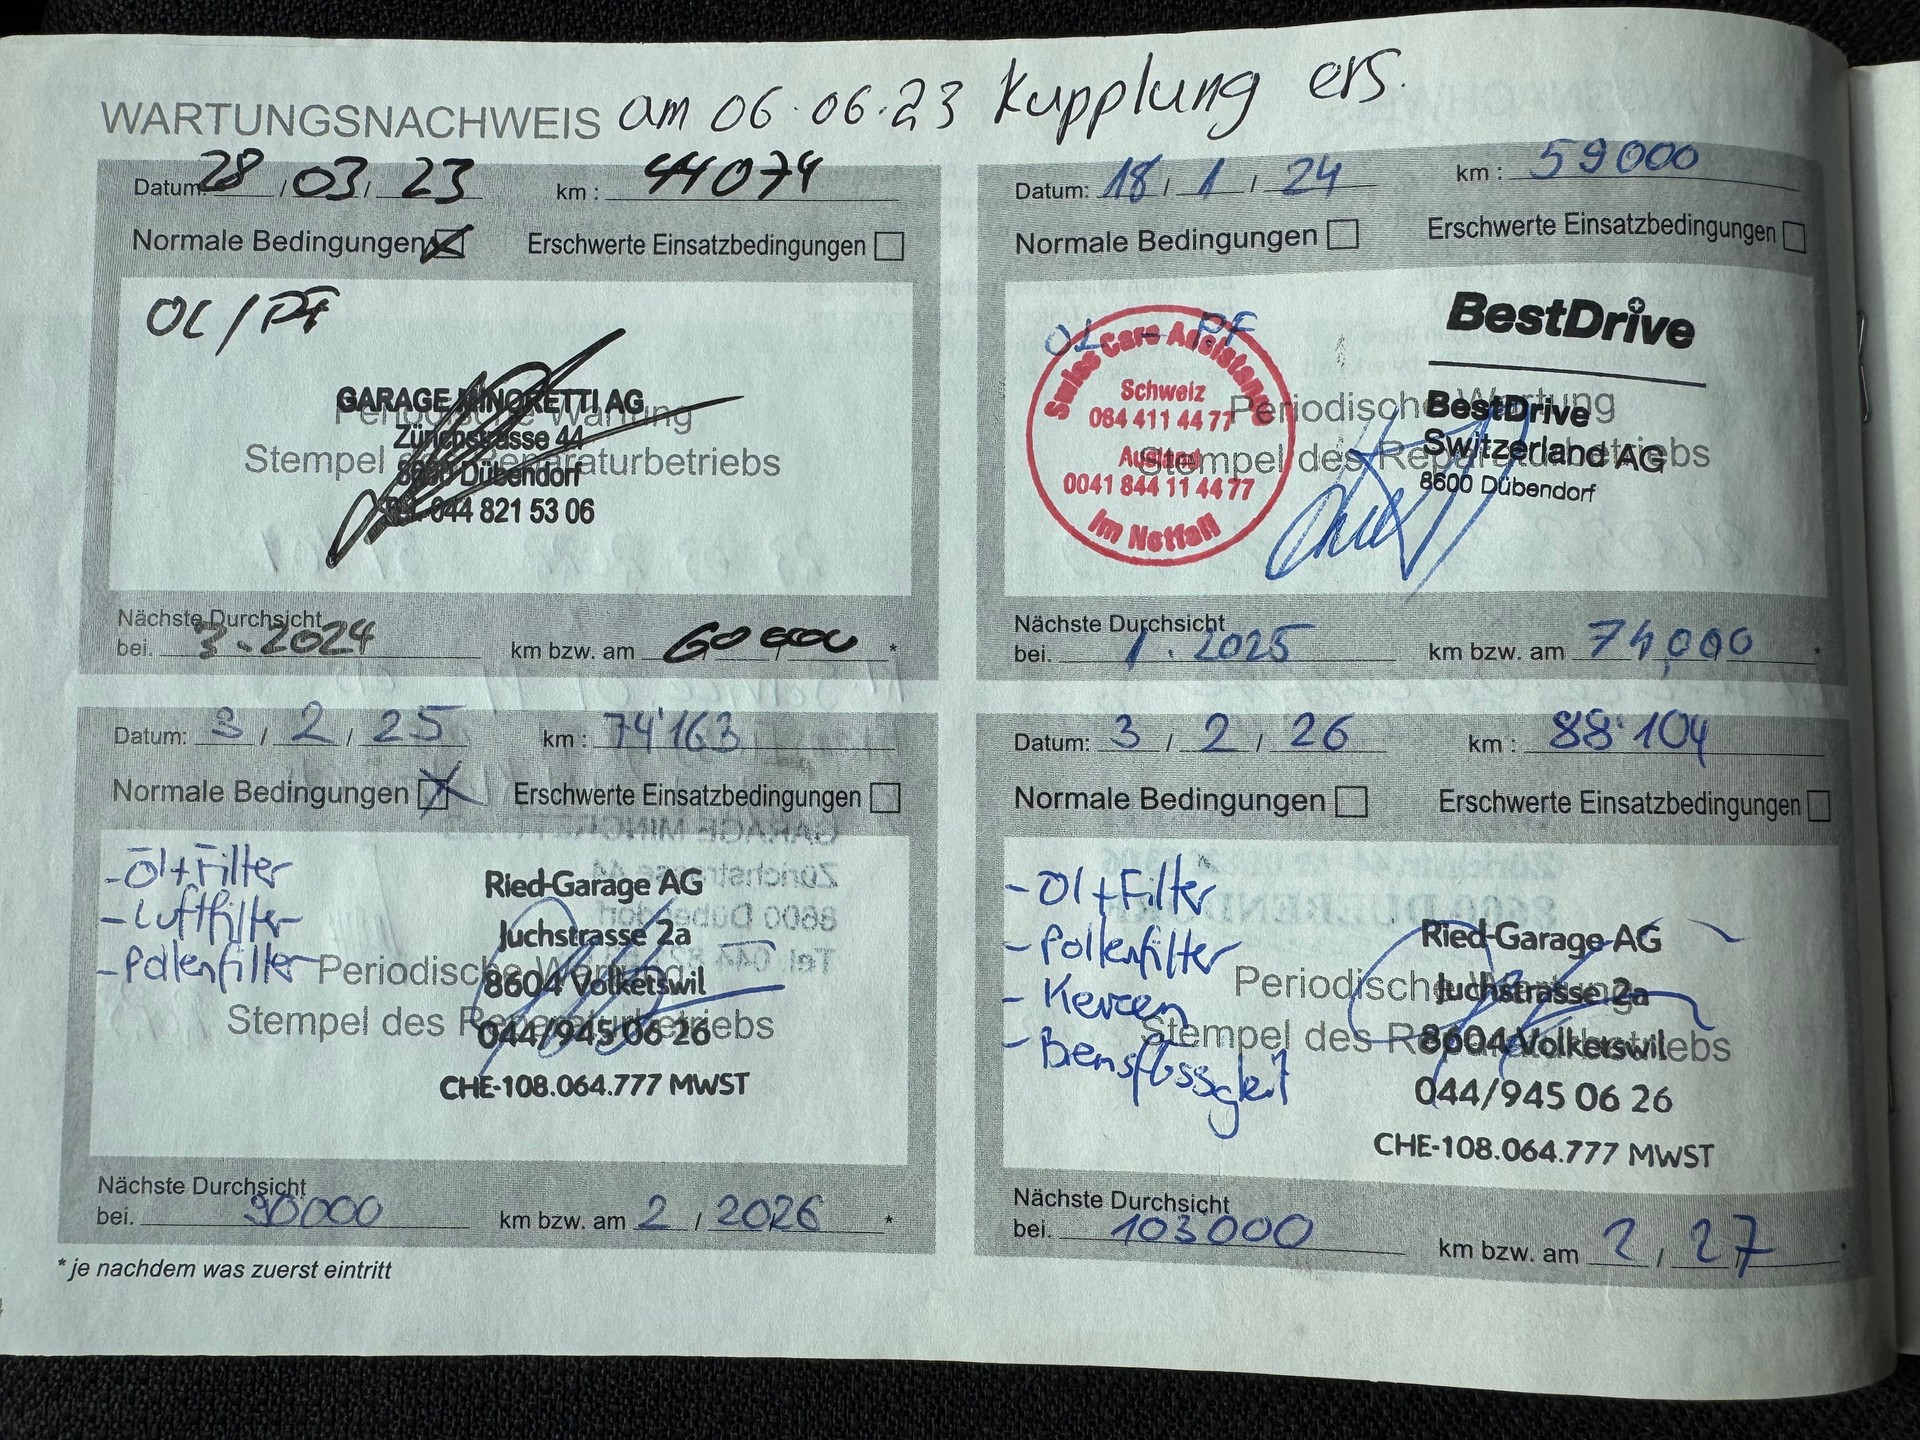 WARTUNGSNACHWEIS am 06.06.23 Kupplung ers.
Datum: 28 / 03 / 23 km : 44074
Normale Bedingungen Erschwerte Einsatzbedingungen
OL / PF
GARAGE MINORETTI AG
Periodische Wartung
Zürichstrasse 44
Stempel des Reparaturbetriebs
8600 Dübendorf
Tel. 044 821 53 06
Nächste Durchsicht
bei. 3.2024 km bzw. am 60000 *
Datum: 18 / 1 / 24 km : 59000
Normale Bedingungen Erschwerte Einsatzbedingungen
OL - PF
Swiss Care Assistance
Schweiz
084 411 44 77
Ausland
0041 844 11 44 77
Im Notfall
BestDrive
Periodische Wartung
BestDrive
Switzerland AG
Stempel des Reparaturbetriebs
8600 Dübendorf
Nächste Durchsicht
bei. 1.2025 km bzw. am 74,000 *
Datum: 3 / 2 / 25 km : 74'163
Normale Bedingungen Erschwerte Einsatzbedingungen
- Öl + Filter
- Luftfilter
- Pollenfilter
Ried-Garage AG
Juchstrasse 2a
Periodische Wartung
8604 Volketswil
Stempel des Reparaturbetriebs
044/945 06 26
CHE-108.064.777 MWST
Nächste Durchsicht
bei. 90000 km bzw. am 2 / 2026 *
Datum: 3 / 2 / 26 km : 88'104
Normale Bedingungen Erschwerte Einsatzbedingungen
- Öl + Filter
- Pollenfilter
- Kerzen
- Bremsflüssgkeit
Ried-Garage AG
Periodische Wartung
Juchstrasse 2a
Stempel des Reparaturbetriebs
8604 Volketswil
044/945 06 26
CHE-108.064.777 MWST
Nächste Durchsicht
bei. 103000 km bzw. am 2 / 27 *
* je nachdem was zuerst eintritt